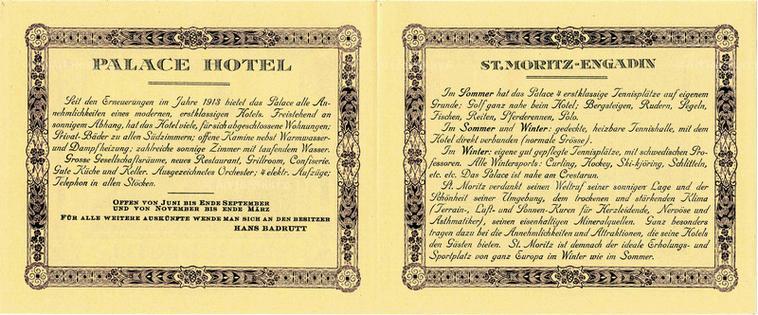 PALACE HOTEL
Seit den Erneuerungen im Jahre 1913 bietet das Palace alle An-
nehmlichkeiten eines modernen, erstklassigen Hotels. Freistehend an
sonnigem Abhang, hat das Hotel viele, für sich abgeschlossene Wohnungen;
Privat-Bäder zu allen Südzimmern; offene Kamine nebst Warmwasser-
und Dampfheizung; zahlreiche sonnige Zimmer mit laufendem Wasser.
Grosse Gesellschaftsräume, neues Restaurant, Grillroom, Confiserie.
Gute Küche und Keller. Ausgezeichnetes Orchester; 4 elektr. Aufzüge;
Telephon in allen Stöcken.
OFFEN VON JUNI BIS ENDE SEPTEMBER
UND VON NOVEMBER BIS ENDE MÄRZ
FÜR ALLE WEITERE AUSKÜNFTE WENDE MAN SICH AN DEN BESITZER
HANS BADRUTT
ST. MORITZ-ENGADIN
Im Sommer hat das Palace 4 erstklassige Tennisplätze auf eigenem
Grunde; Golf ganz nahe beim Hotel; Bergsteigen, Rudern, Segeln,
Fischen, Reiten, Pferderennen, Polo.
Im Sommer und Winter: gedeckte, heizbare Tennishalle, mit dem
Hotel direkt verbunden (normale Grösse).
Im Winter: eigene gut gepflegte Tennisplätze, mit schwedischen Pro-
fessoren. Alle Wintersports: Curling, Hockey, Ski-kjöring, Schlitteln,
etc. etc. Das Palace ist nahe am Crestarun.
St. Moritz verdankt seinen Weltruf seiner sonnigen Lage und der
Schönheit seiner Umgebung, dem trockenen und stärkenden Klima
(Terrain-, Luft- und Sonnen-Kuren für Herzleidende, Nervöse und
Asthmatiker), seinen eisenhaltigen Mineralquellen. Ganz besonders
tragen dazu bei die Annehmlichkeiten und Attraktionen, die seine Hotels
den Gästen bieten. St. Moritz ist demnach der ideale Erholungs- und
Sportplatz von ganz Europa im Winter wie im Sommer.